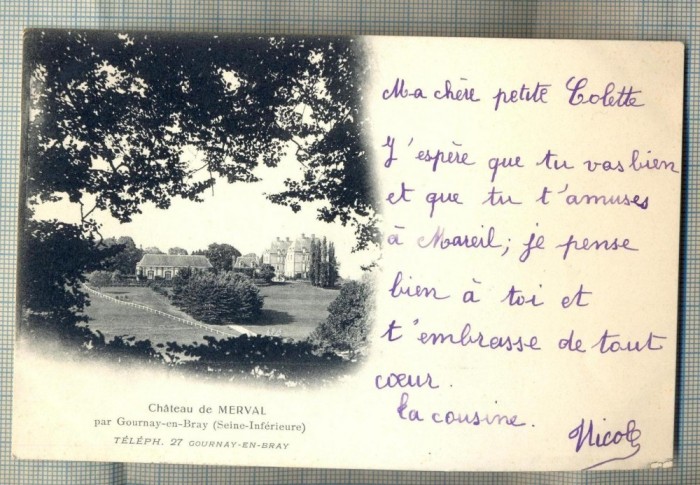 Ma chère petite Colette
J'espère que tu vas bien
et que tu t'amuses
à Mareil; je pense
bien à toi et
t'embrasse de tout
cœur.
ta cousine.
Nicole
Château de MERVAL
par Gournay-en-Bray (Seine-Inférieure)
TÉLÉPH. 27 GOURNAY-EN-BRAY